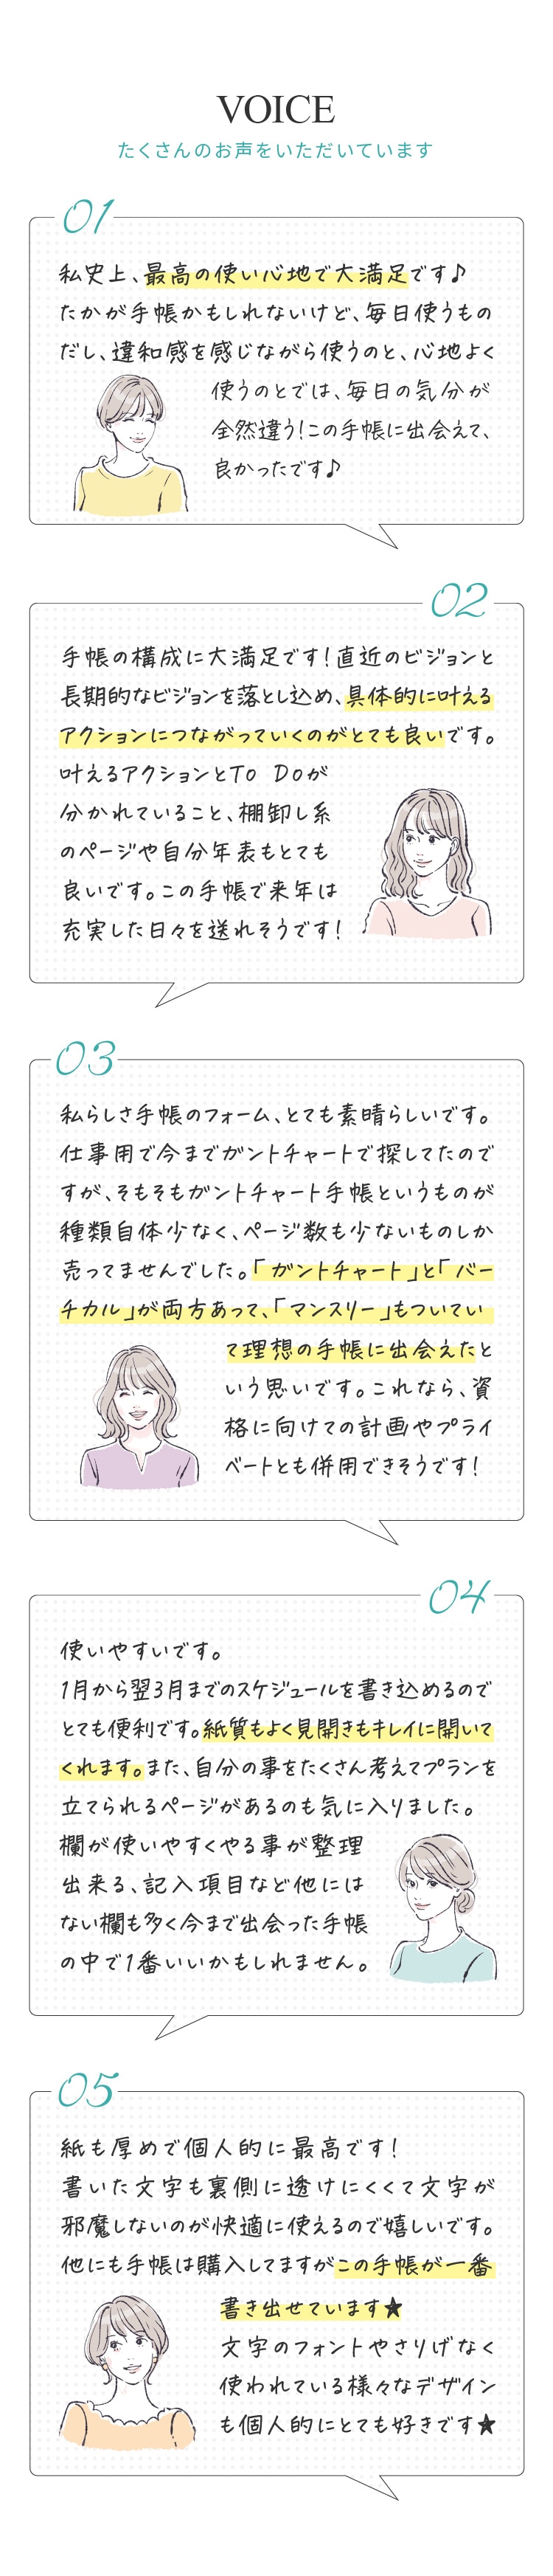 VOICE
たくさんのお声をいただいています
01
私史上、最高の使い心地で大満足です♪
たかが手帳かもしれないけど、毎日使うもの
だし、違和感を感じながら使うのと、心地よく
使うのとでは、毎日の気分が
全然違う!この手帳に出会えて、
良かったです♪
02
手帳の構成に大満足です!直近のビジョンと
長期的なビジョンを落とし込め、具体的に叶える
アクションにつながっていくのがとても良いです。
叶えるアクションとTo Doが
分かれていること、棚卸し系
のページや自分年表もとても
良いです。この手帳で来年は
充実した日々を送れそうです!
03
私らしさ手帳のフォーム、とても素晴らしいです。
仕事用で今までガントチャートで探してたので
すが、そもそもガントチャート手帳というものが
種類自体少なく、ページ数も少ないものしか
売ってませんでした。「ガントチャート」と「バー
チカル」が両方あって、「マンスリー」もついてい
て理想の手帳に出会えたと
いう思いです。これなら、資
格に向けての計画やプライ
ベートとも併用できそうです!
04
使いやすいです。
1月から翌3月までのスケジュールを書き込めるので
とても便利です。紙質もよく見開きもキレイに開いて
くれます。また、自分の事をたくさん考えてプランを
立てられるページがあるのも気に入りました。
欄が使いやすくやる事が整理
出来る、記入項目など他には
ない欄も多く今まで出会った手帳
の中で1番いいかもしれません。
05
紙も厚めで個人的に最高です!
書いた文字も裏側に透けにくくて文字が
邪魔しないのが快適に使えるので嬉しいです。
他にも手帳は購入してますがこの手帳が一番
書き出せています★
文字のフォントやさりげなく
使われている様々なデザイン
も個人的にとても好きです★